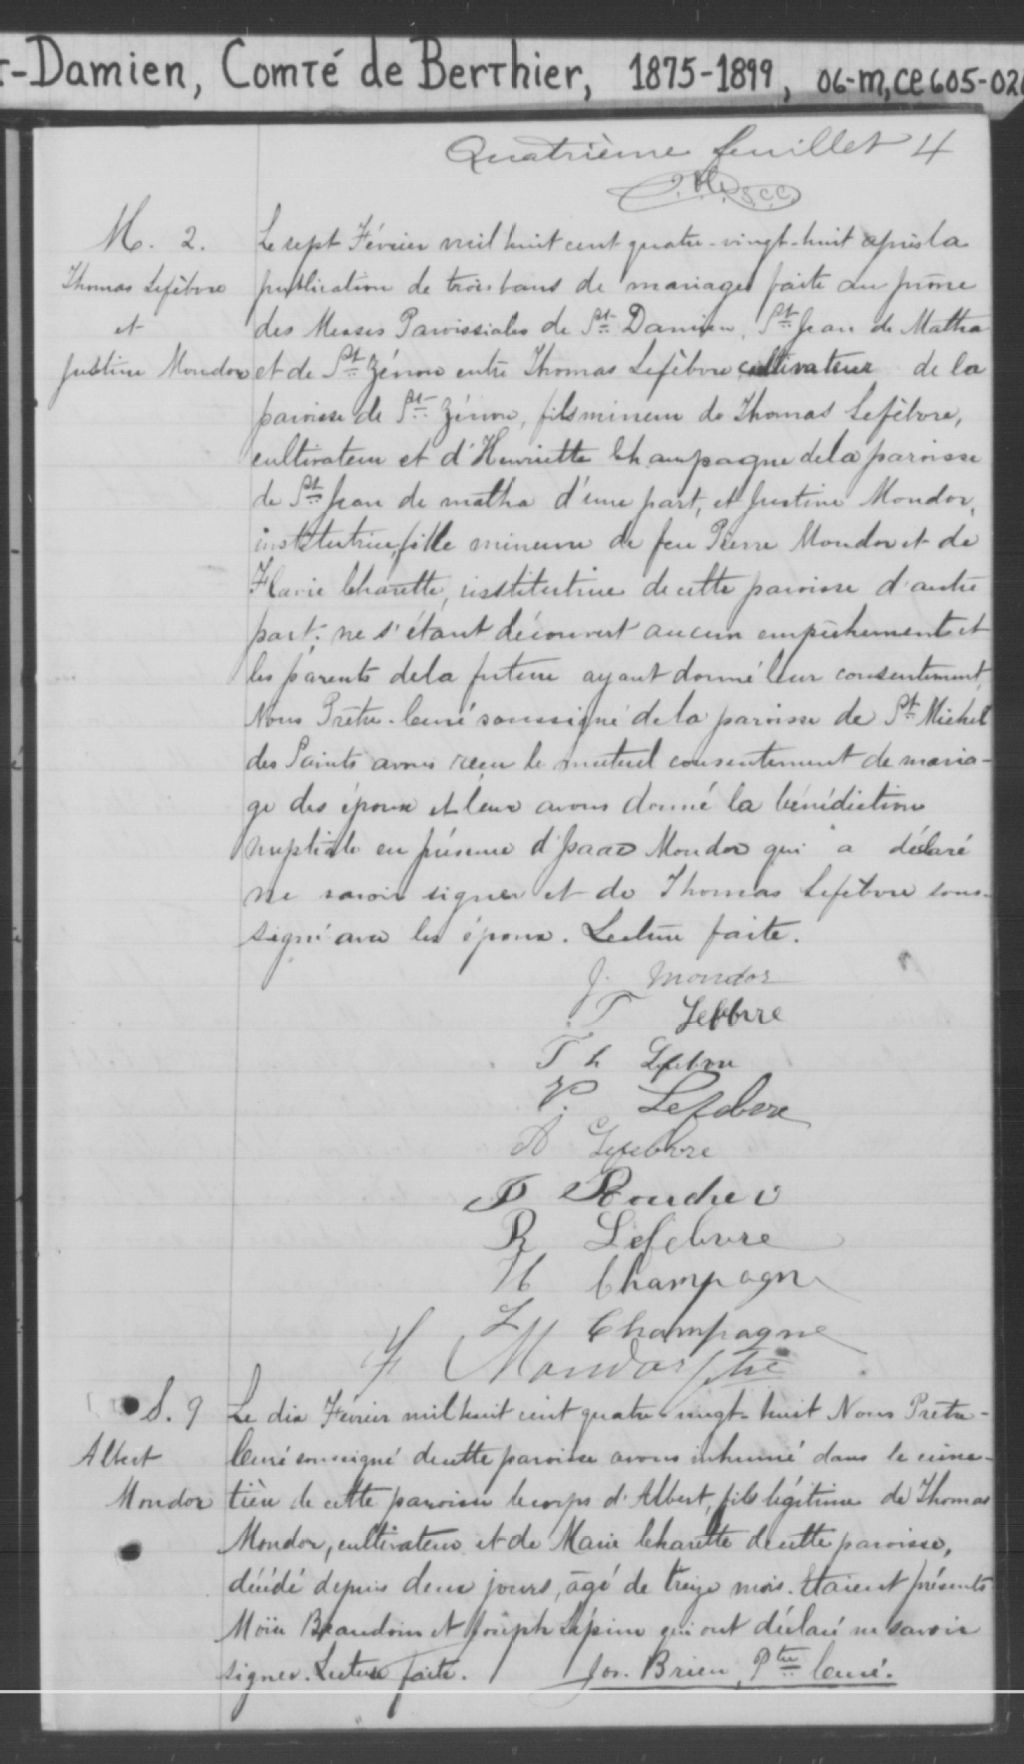 -Damien, Comté de Berthier, 1875-1899, 06-M,CE605-02
Quatrième feuillet 4
S.C.C.
M. 2.
Thomas Lefèbvre
et
Justine Mondor
Le sept Février mil huit cent quatre-vingt-huit après la
publication de trois bans de mariages faite au prône
des Messes Paroissiales de St Damien, St Jean de Matha
et de St Zénon entre Thomas Lefèbvre cultivateur de la
paroisse de St Zénon, fils mineur de Thomas Lefèbvre,
cultivateur et d'Henriette Champagne de la paroisse
de St Jean de matha d'une part, et Justine Mondor,
institutrice, fille mineure de feu Pierre Mondor et de
Flavie Charette, institutrice de cette paroisse d'autre
part; ne s'étant découvert aucun empêchement et
les parents de la future ayant donné leur consentement,
Nous Prêtre-Curé soussigné de la paroisse de St Michel
des Saints avons reçu le mutuel consentement de maria-
ge des époux et leur avons donné la bénédiction
nuptiale en présence d'Isaac Mondor qui a déclaré
ne savoir signer et de Thomas Lefèbvre sous-
signé avec les époux. Lecture faite.
J. Mondor
T Lefebvre
Th Lefebvre
V. Lefebvre
A Lefebvre
P
R Lefebvre
H Champagne
L Champagne
F Mondor Ptre
S. 9
Albert
Mondor
Le dix Février mil huit cent quatre-vingt-huit Nous Prêtre-
Curé soussigné de cette paroisse avons inhumé dans le cime-
tière de cette paroisse le corps d'Albert, fils légitime de Thomas
Mondor, cultivateur et de Marie Charette de cette paroisse,
décédé depuis deux jours, âgé de treize mois. Etaient présents
Moïse Beaudoin et Joseph Lépine qui ont déclaré ne savoir
signer. Lecture faite. Jos. Brien, Ptre Curé.